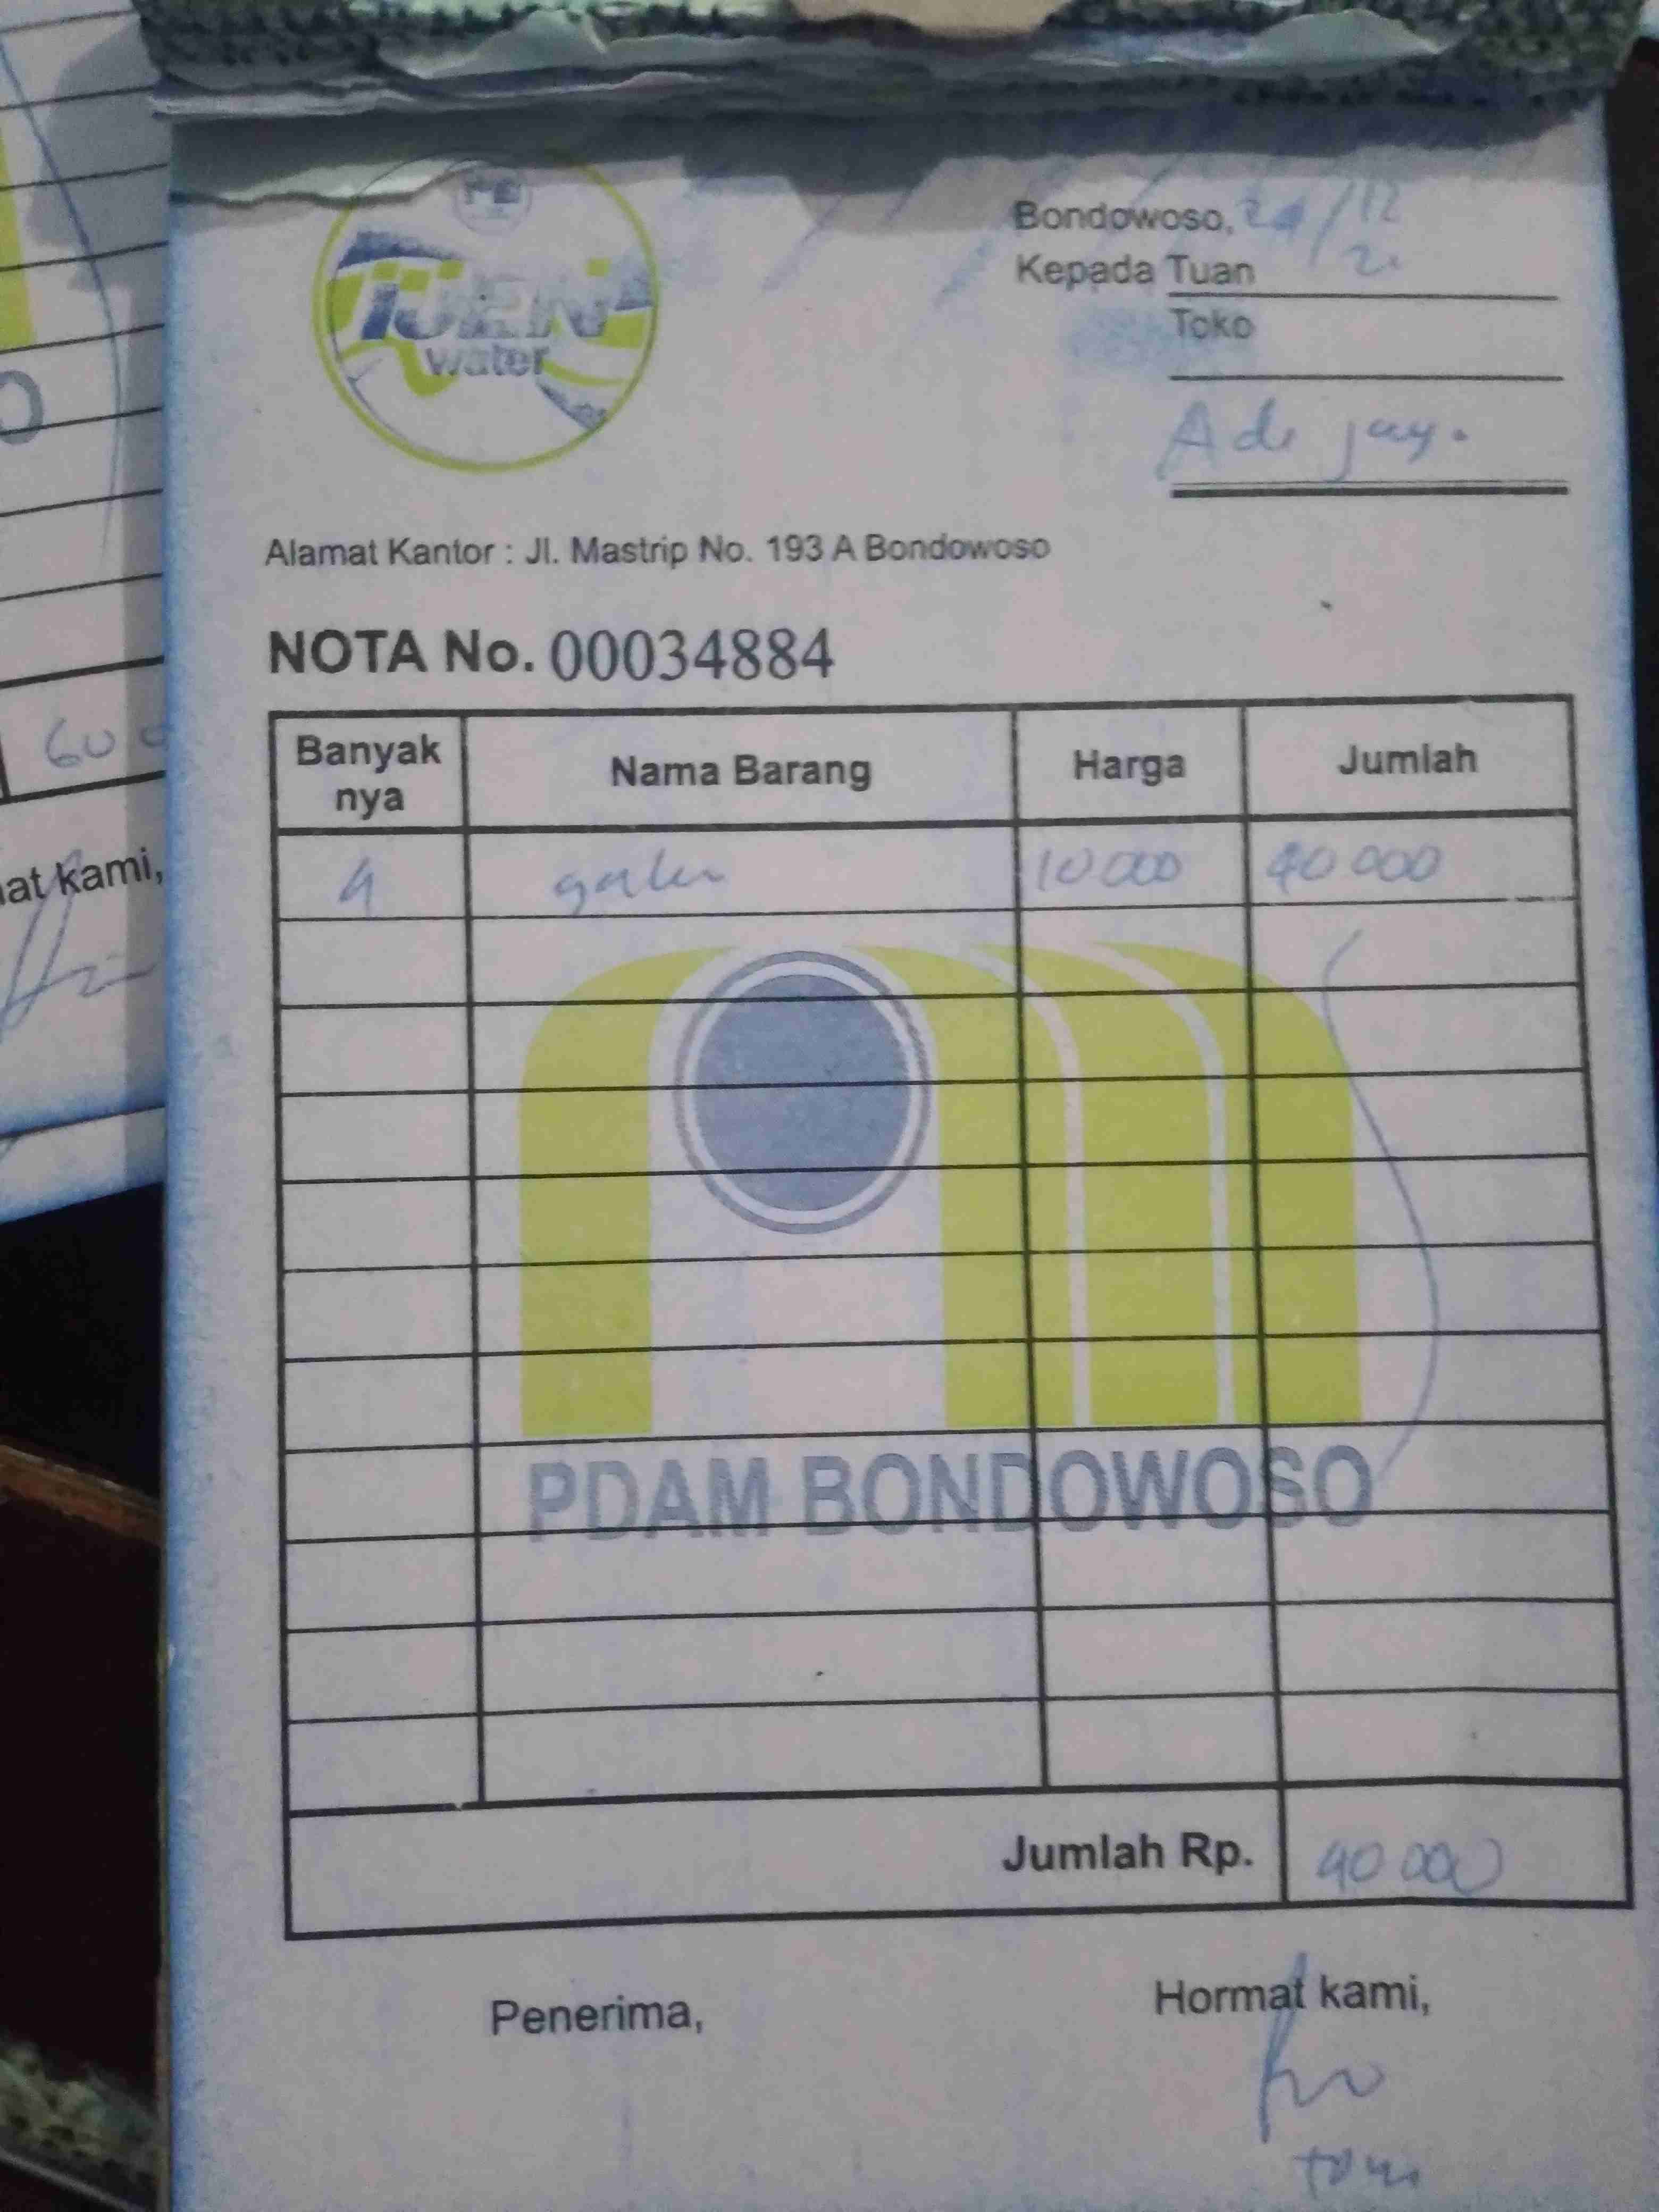 IJEN
water
Bondowoso, 24/12
Kepada Tuan
Toko
Ade jay.
Alamat Kantor : Jl. Mastrip No. 193 A Bondowoso
NOTA No. 00034884
Banyak nya Nama Barang Harga Jumlah
4 galon 10 000 40 000
PDAM BONDOWOSO
Jumlah Rp. 40 000
Penerima, Hormat kami,
60
at kami,